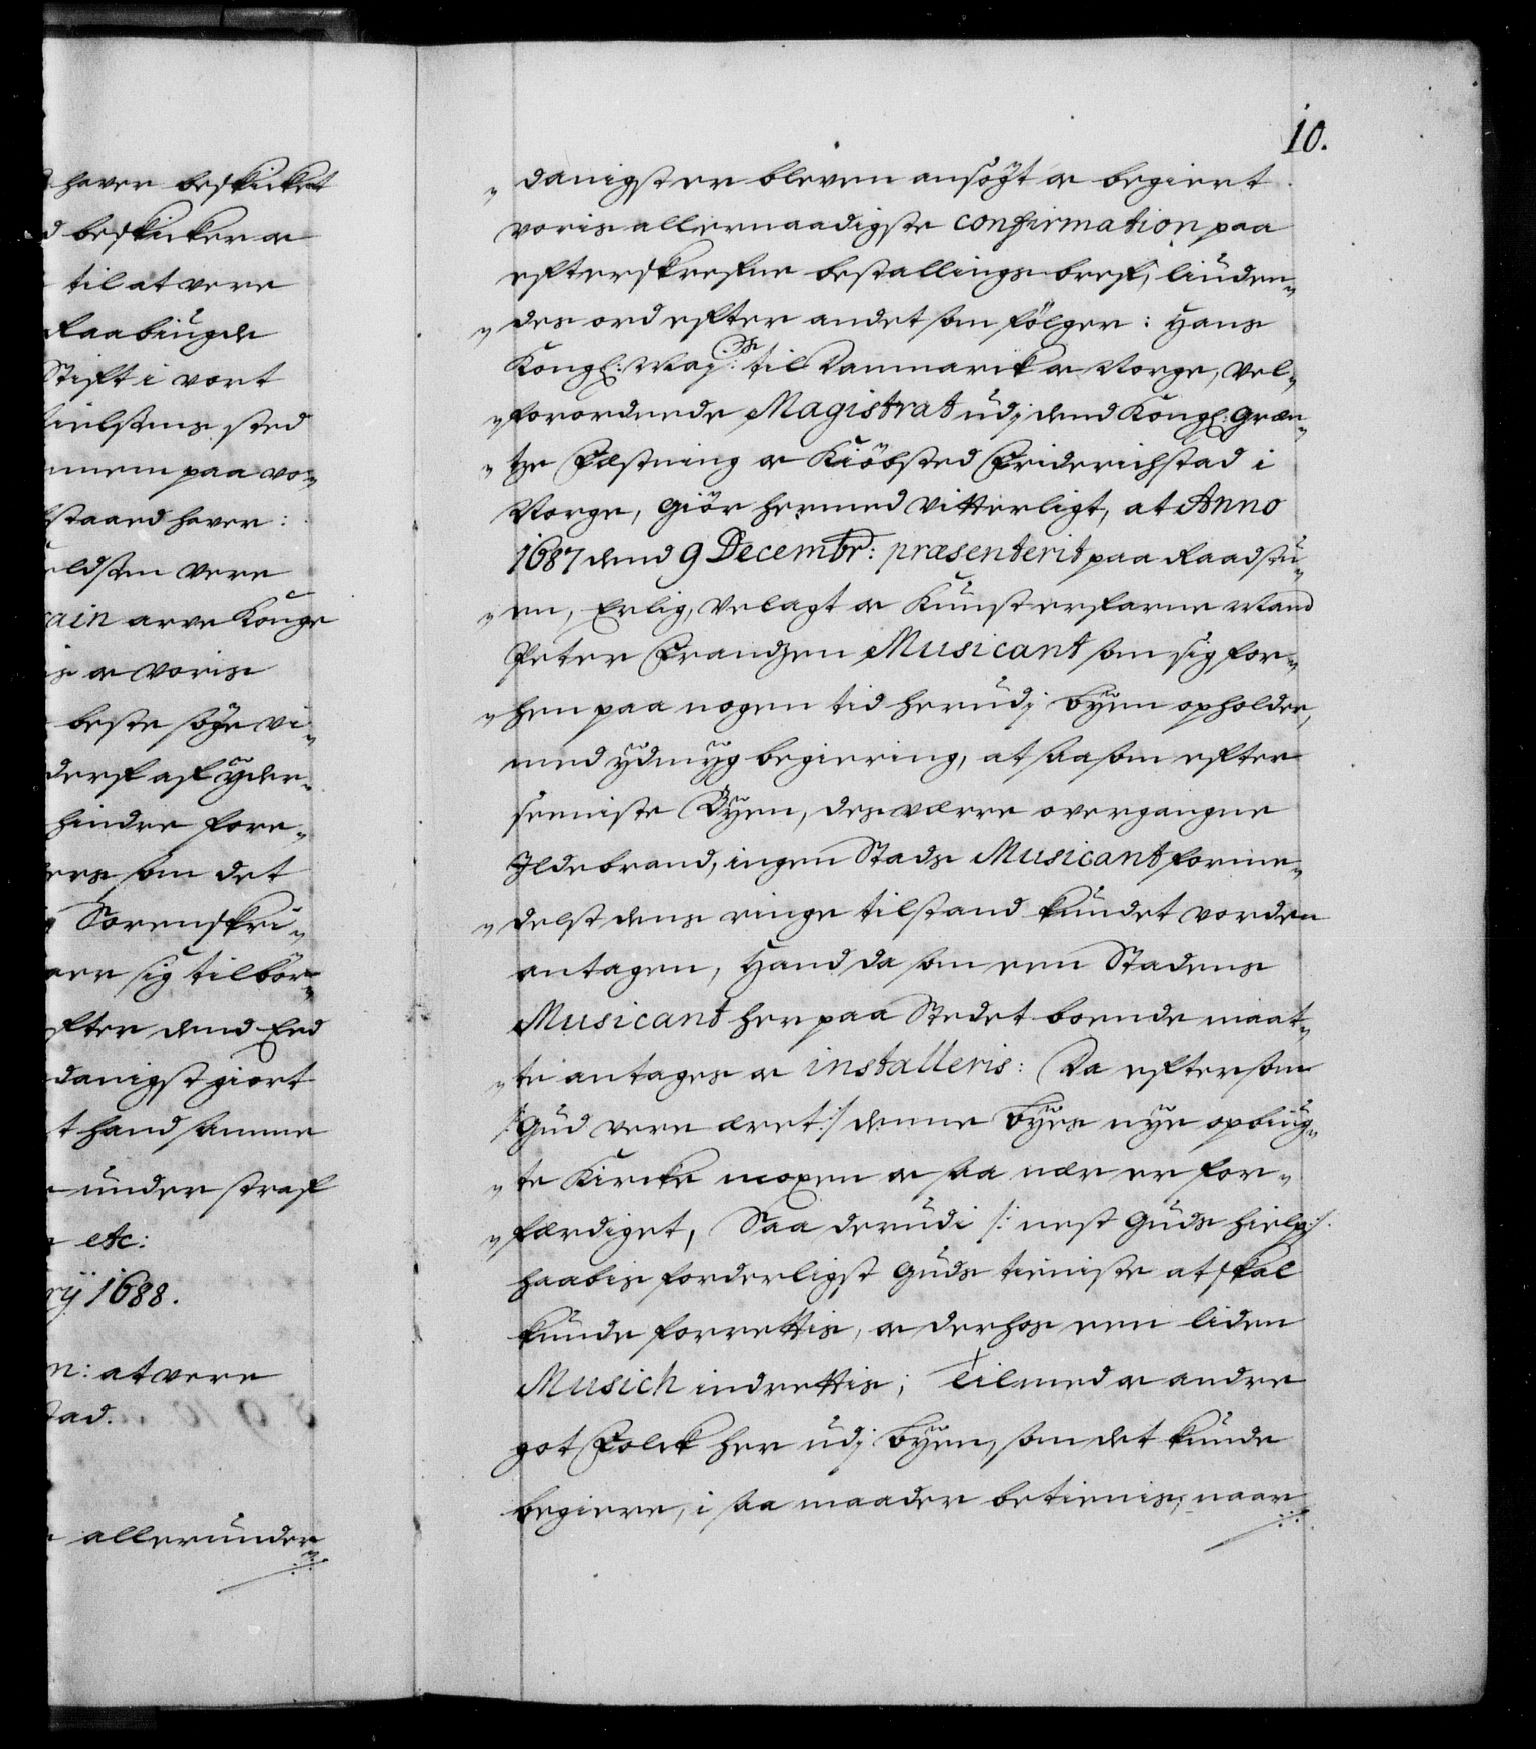 haver beskicket
d beskicker oc
til at vere
Raabiugde
Stift i vort
Nielsens sted
nnem paa vo„
staaed haver:
uldsten vere
ain arve Konge
is oc voris
beste söge vi„
derf af ÿder„
hindre fore„
ers som det
Sorenskri„
aer sig tilbör„
fter dend Eed
danigst giort
t hand samme
under straf
etc:
rÿ 1688.
n: at vere
tad.
allerunder„
10.
„danigst er bleven ansögt oc begiert
voris allernaadigste confirmation paa
efterskrefne bestallings bref, liuden„
„des ord efter andet som fölger: Hans
Kongl: Maj:ts til Danmarck oc Norge, Vel„
„forordnede Magistrat udj dend Kongl: Græn„
„tze Fæstning oc Kiöbsted Friderichstad i
Norge, Giör hermed vitterligt, at Anno
1687 dend 9 Decembr: præsenterit paa Raadstu„
„en, Erlig, velagt oc Kunsterfarne Mand
Peter Frandzen Musicant som sig for„
„hen paa nogen tid herudj Bÿen opholder,
med ÿdmÿg begiering, at saasom efter
seeniste Bÿen, des værre overgangne
Ildebrand, ingen Stads Musicant forme„
„delst dens ringe tilstand kundet vorden
antagen, Hand da som een Stadens
Musicant her paa Stedet boende maat„
„te antages oc installeris: Da eftersom
/: Gud vere æret :/ denne Bÿes nye opbug„
„te Kircke moxen oc saa nær er for„
„færdiget, Saa derudi /: nest Guds hielp :/
haabis forderligst Guds tieniste at skal
kunde forrettis, oc derhos een liden
Musich indrettis; Tilmed oc andre
got Folck her udj Bÿen, som det kunde
begiere, i saa maader betienis; naar